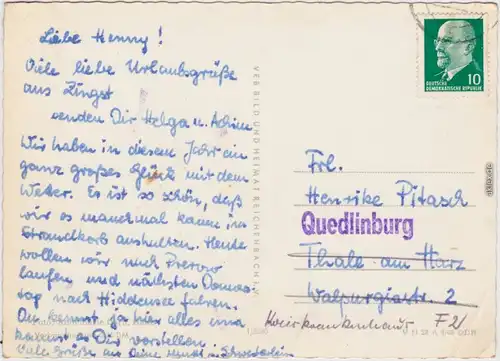 Liebe Henny!
Viele liebe Urlaubsgrüße
aus Zingst
senden Dir Helga u. Achim
Wir haben in diesem Jahr ein
ganz großes Glück mit dem
Wetter. Es ist so schön, daß
wir es manchmal kaum im
Strandkorb aushalten. Heute
wollen wir nach Prerow
laufen und nächsten Donners-
tag nach Hiddensee fahren.
Du kennst ja hier alles und
kannst es Dir vorstellen.
Viele Grüße an Deine Mutti u. Schwesterlein
VEB BILD UND HEIMAT REICHENBACH I. V.
DEUTSCHE
DEMOKRATISCHE REPUBLIK
10
Frl.
Henrike Pitasch
Quedlinburg
Thale am Harz
Walpurgisstr. 2
Kreiskrankenhaus F2